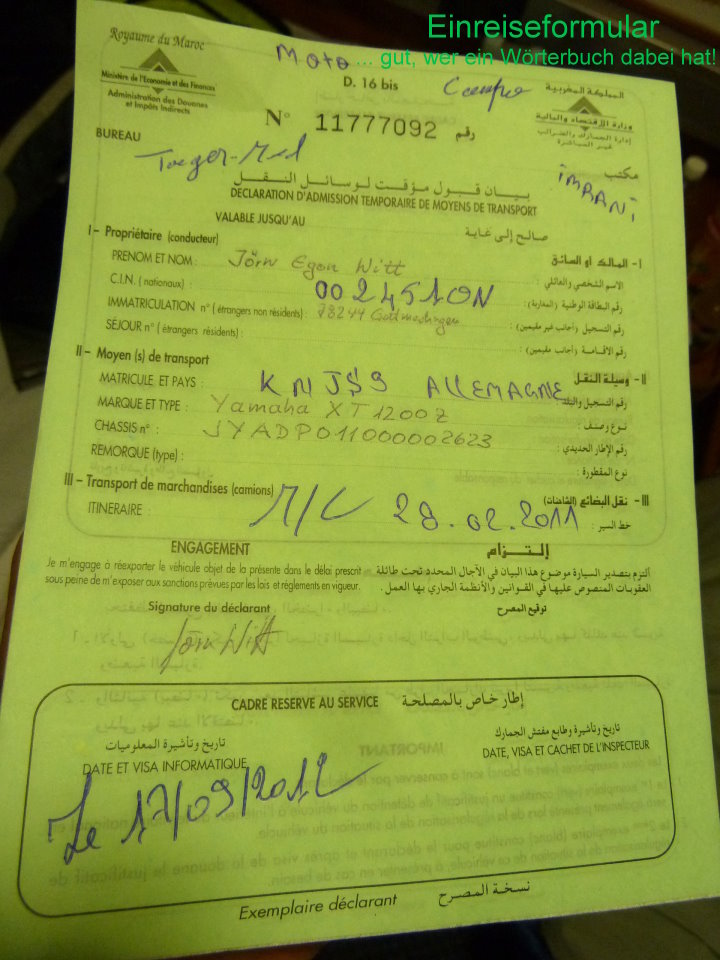 Einreiseformular
... gut, wer ein Wörterbuch dabei hat!
Royaume du Maroc
Moto
المملكة المغربية
Ministère de l'Economie et des Finances
D. 16 bis
وزارة الاقتصاد والمالية
Administration des Douanes
et Impôts Indirects
إدارة الجمارك والضرائب
غير المباشرة
N° 11777092 رقم
BUREAU
مكتب
بيان قبول مؤقت لوسائل النقل
DECLARATION D'ADMISSION TEMPORAIRE DE MOYENS DE TRANSPORT
VALABLE JUSQU'AU
صالح إلى غاية
I - Propriétaire (conducteur)
I- المالك او السائق
PRENOM ET NOM : Jörn Egon Witt
الاسم الشخصي والعائلي :
C.I.N. ( nationaux) : 002451ON
رقم البطاقة الوطنية (المغاربة) :
IMMATRICULATION n° ( étrangers non résidents) : 78244 Gottmadingen
رقم التسجيل (أجانب غير مقيمين) :
SÉJOUR n° ( étrangers résidents) :
رقم الاقامة (أجانب مقيمين) :
II - Moyen (s) de transport
II- وسيلة النقل
MATRICULE ET PAYS : KN JS 9 ALLEMAGNE
رقم التسجيل والبلد :
MARQUE ET TYPE : Yamaha XT1200Z
نوع وصنف :
CHASSIS n° : JYADP011000002623
رقم الإطار الحديدي :
REMORQUE (type) :
نوع المقطورة :
III - Transport de marchandises (camions)
III- نقل البضائع (الشاحنات)
ITINERAIRE : M/C 28.02.2011
خط السير :
ENGAGEMENT
إلتزام
Je m'engage à réexporter le véhicule objet de la présente dans le délai prescrit
sous peine de m'exposer aux sanctions prévues par les lois et règlements en vigueur.
ألتزم بتصدير السيارة موضوع هذا البيان في الآجال المحدد تحت طائلة
العقوبات المنصوص عليها في القوانين والأنظمة الجاري بها العمل .
Signature du déclarant
توقيع المصرح
Jörn Witt
CADRE RESERVE AU SERVICE إطار خاص بالمصلحة
تاريخ وتأشيرة المعلوميات
تاريخ وتأشيرة وطابع مفتش الجمارك
DATE ET VISA INFORMATIQUE
DATE, VISA ET CACHET DE L'INSPECTEUR
Le 17/09/2012
Exemplaire déclarant نسخة المصرح